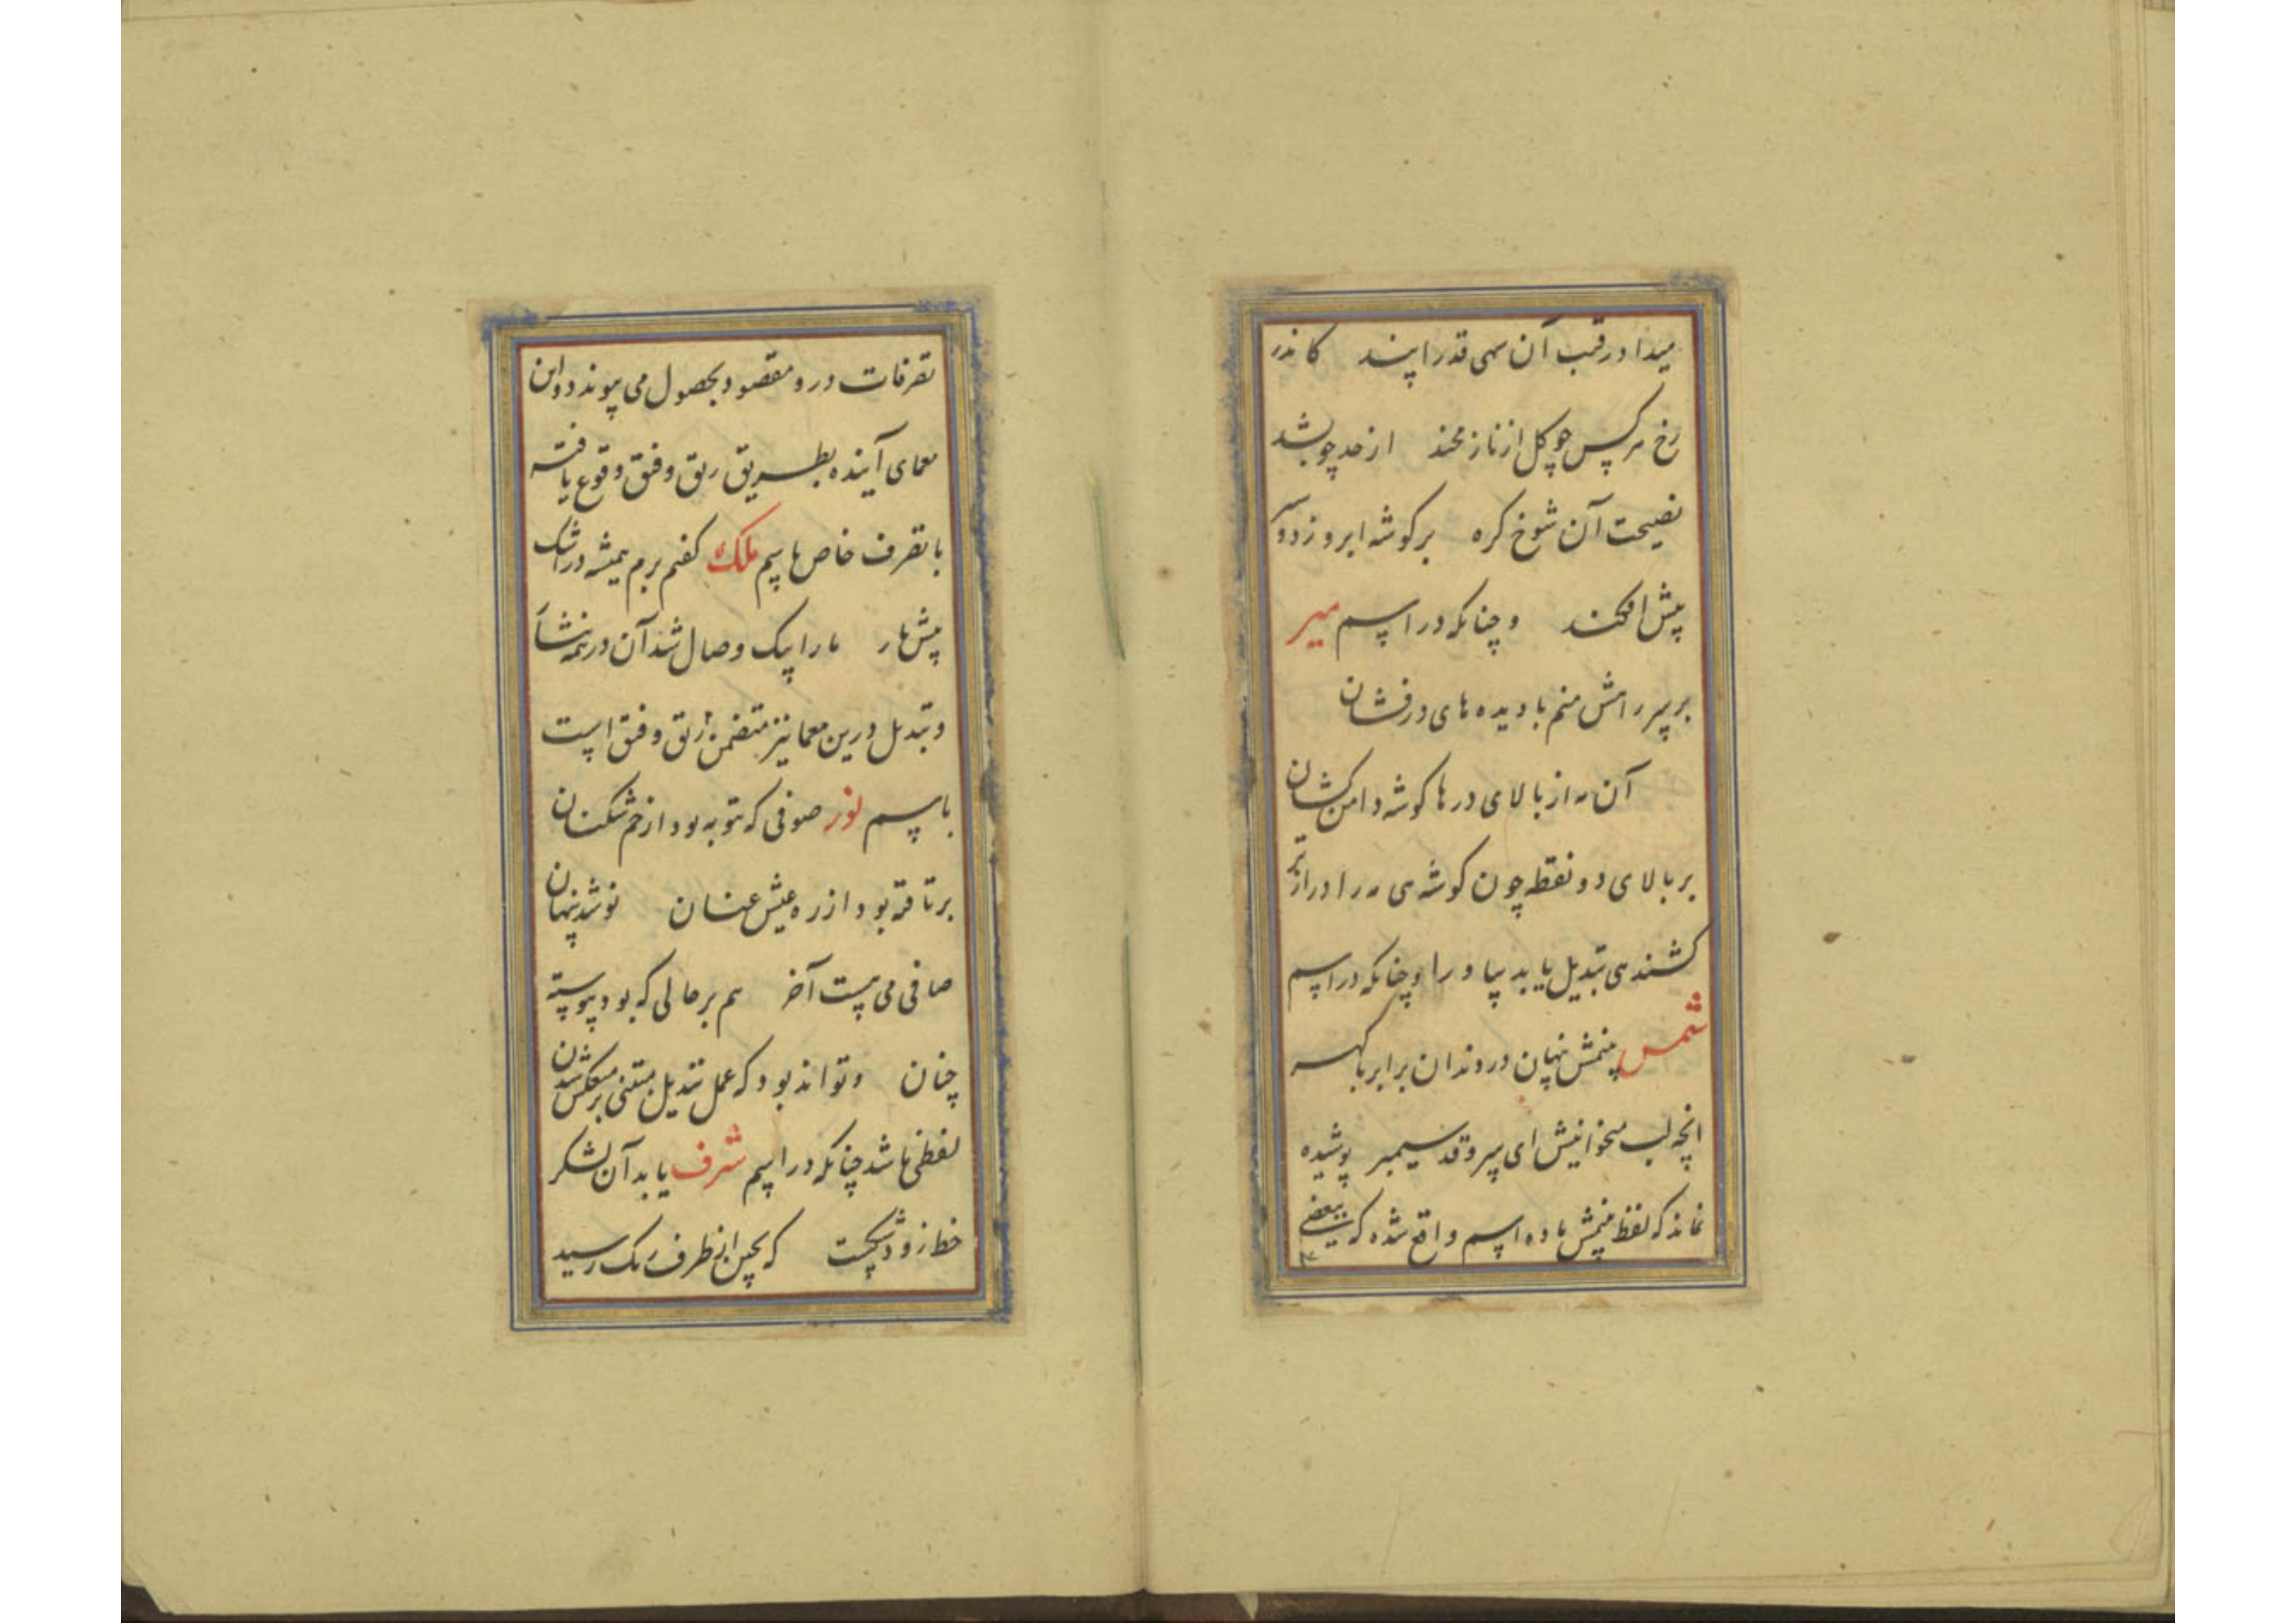 میداد رقیب آن سهی قد را پند کاندر
رخ هر کس چو گل از ناز مخند از حد چو بشد
نصیحت آن شوخ گره بر گوشه ابرو زد و سر
پیش افکند و چنانکه در اسم میر
بر سر راهش منم با دیده های درفشان
آن مه از بالای درها گوشه دامن کشان
بر بالای دو نقطه چون گوشه می مه را دراز تر
کشند می تبدیل یابد بیا و را و چنانکه در اسم
شمس پنهان در و دندان برابر با گهر
انچه لب میخوانیش ای سرو قد سیمبر پوشیده
نماند که لفظ باده اسم واقع شده که ببعضی
تصرفات درو مقصود بحصول می پیوندد و این
معمای آینده بطریق رتق و فتق وقوع یافته
با تصرف خاص باسم ملک گفتم برم همیشه در اشک
پیش یار ما را پیک وصال شد آن در
و تبدیل درین معما نیز متضمن رتق و فتق است
باسم نور صوفی که بتوبه بود از خم شکنان
برتافته بود از ره عیش عنان نو شد پنهان
صافی می هست آخر هم بر حالی که بود پیوسته
چنان و تواند بود که عمل تبدیل مبتنی بر منعکس شدن
لفظی باشد چنانکه در اسم شرف یابد آن لشکر
خط زود شکست که بچین از طرف رنگ رسید